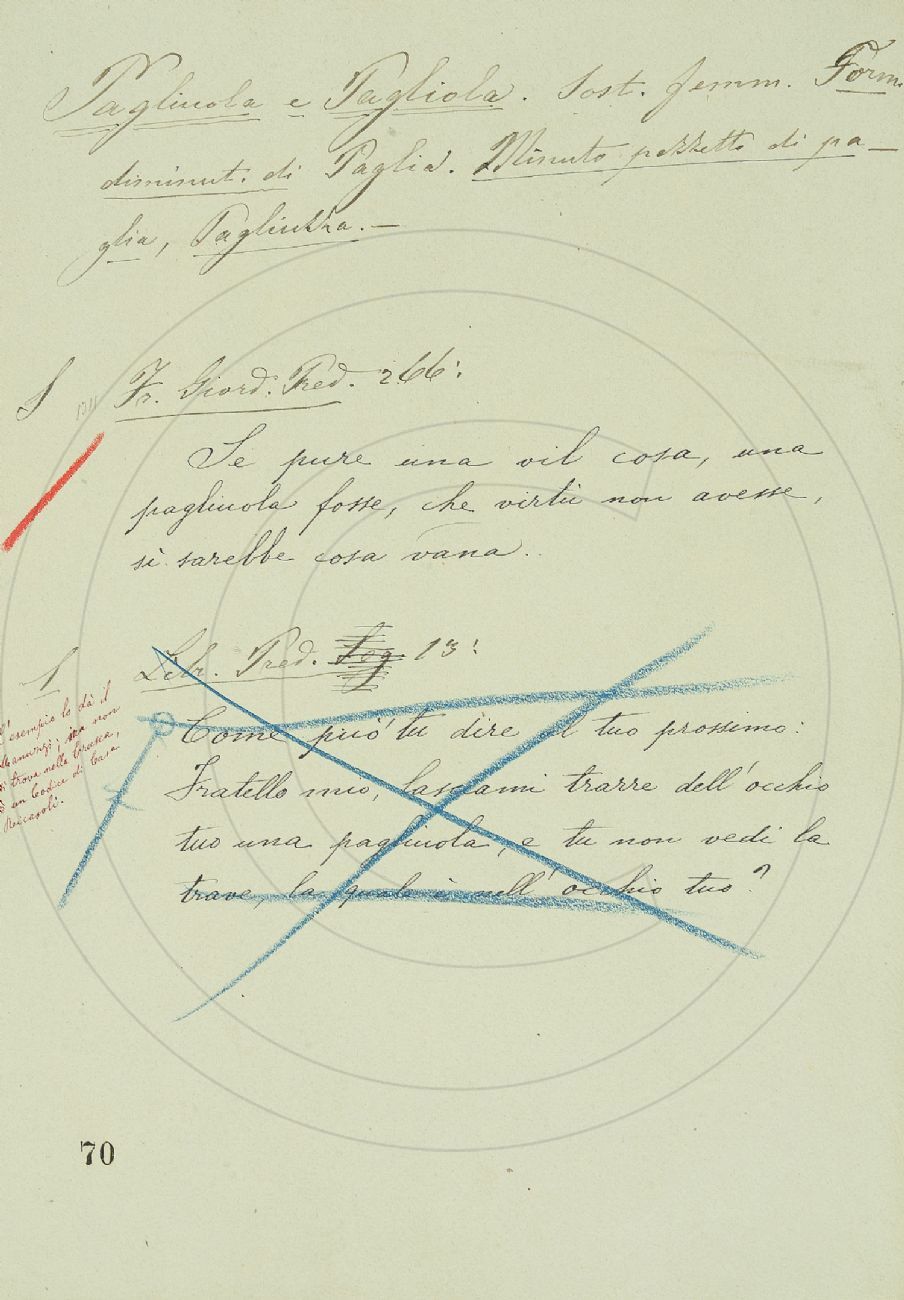 Pagliuola e Pagliola. Sost. femm. Form.
diminut. di Paglia. Minuto pezzetto di pa-
glia, Pagliuzza.-
S Fr. Giord. Pred. 266:
Se pure una vil cosa, una
pagliuola fosse, che virtù non avesse,
sì sarebbe cosa vana.
S Libr. Pred. 13:
esempio lo dà il
Manuzzi, ma non
si trova nella Crusca,
è un Codice di Casa
Riccasoli.
Come può tu dire al tuo prossimo:
Fratello mio, lasciami trarre dell'occhio
tuo una pagliuola, e tu non vedi la
trave, la quale è nell'occhio tuo?
70